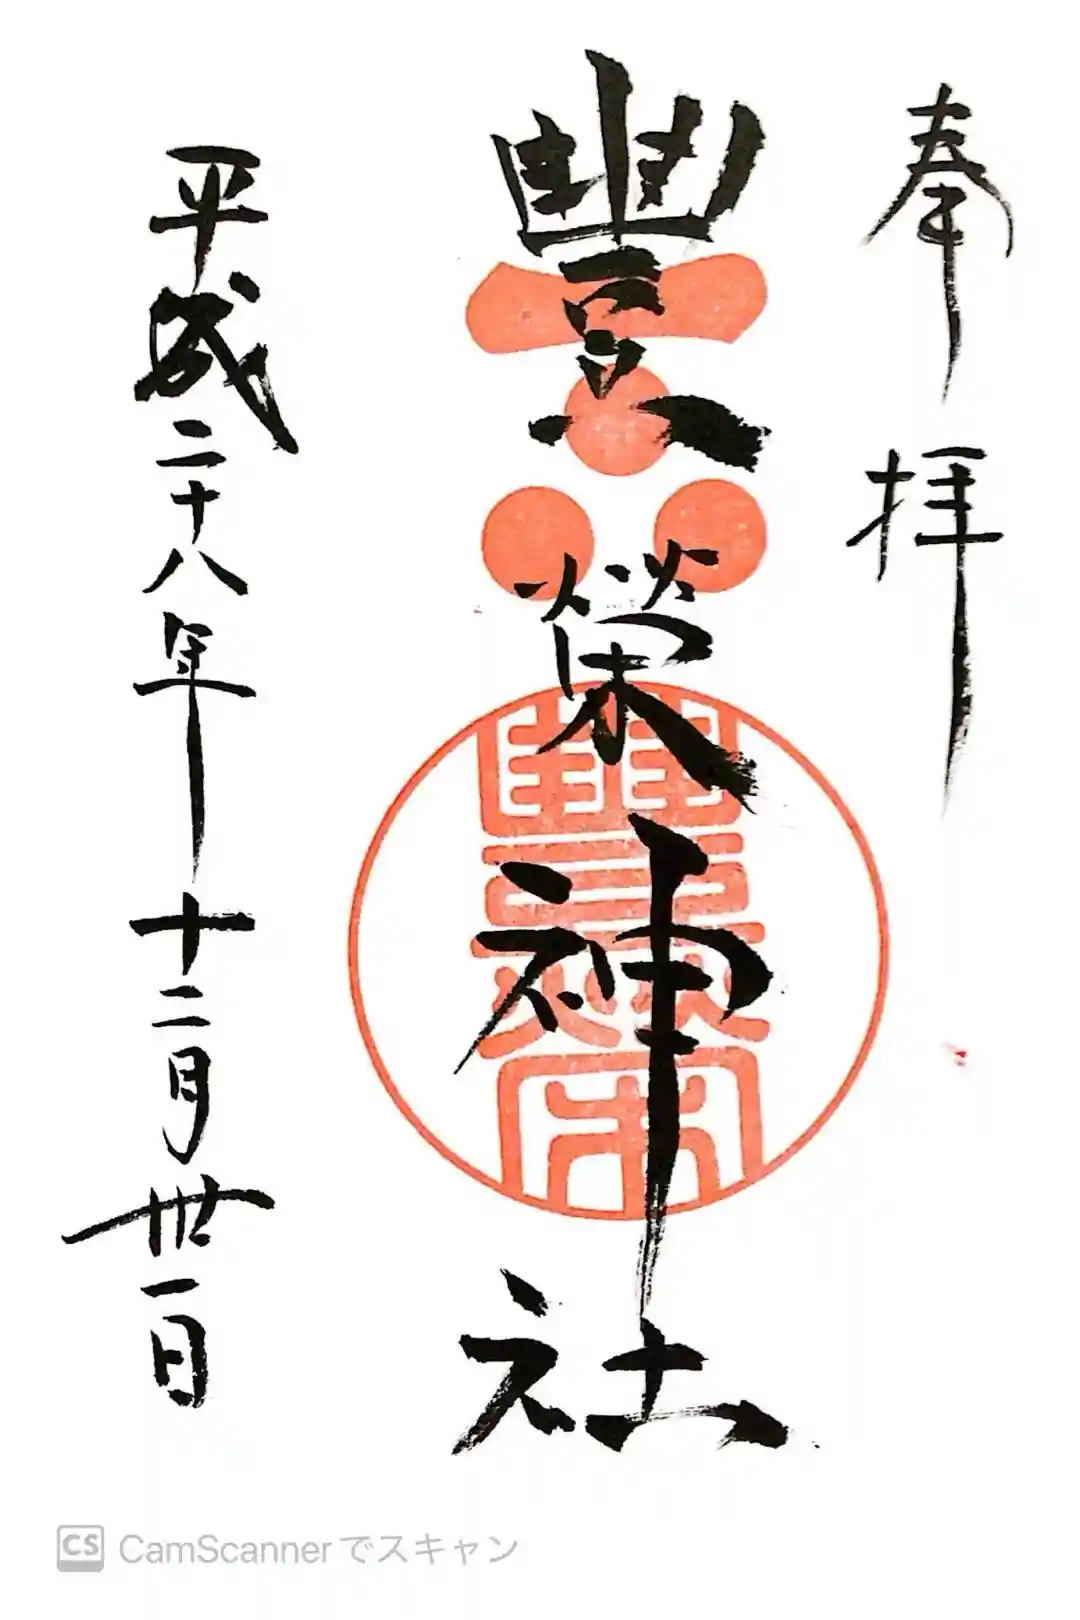 奉拝
豐榮神社
豐榮
平成二十八年十二月丗一日
CS CamScannerでスキャン